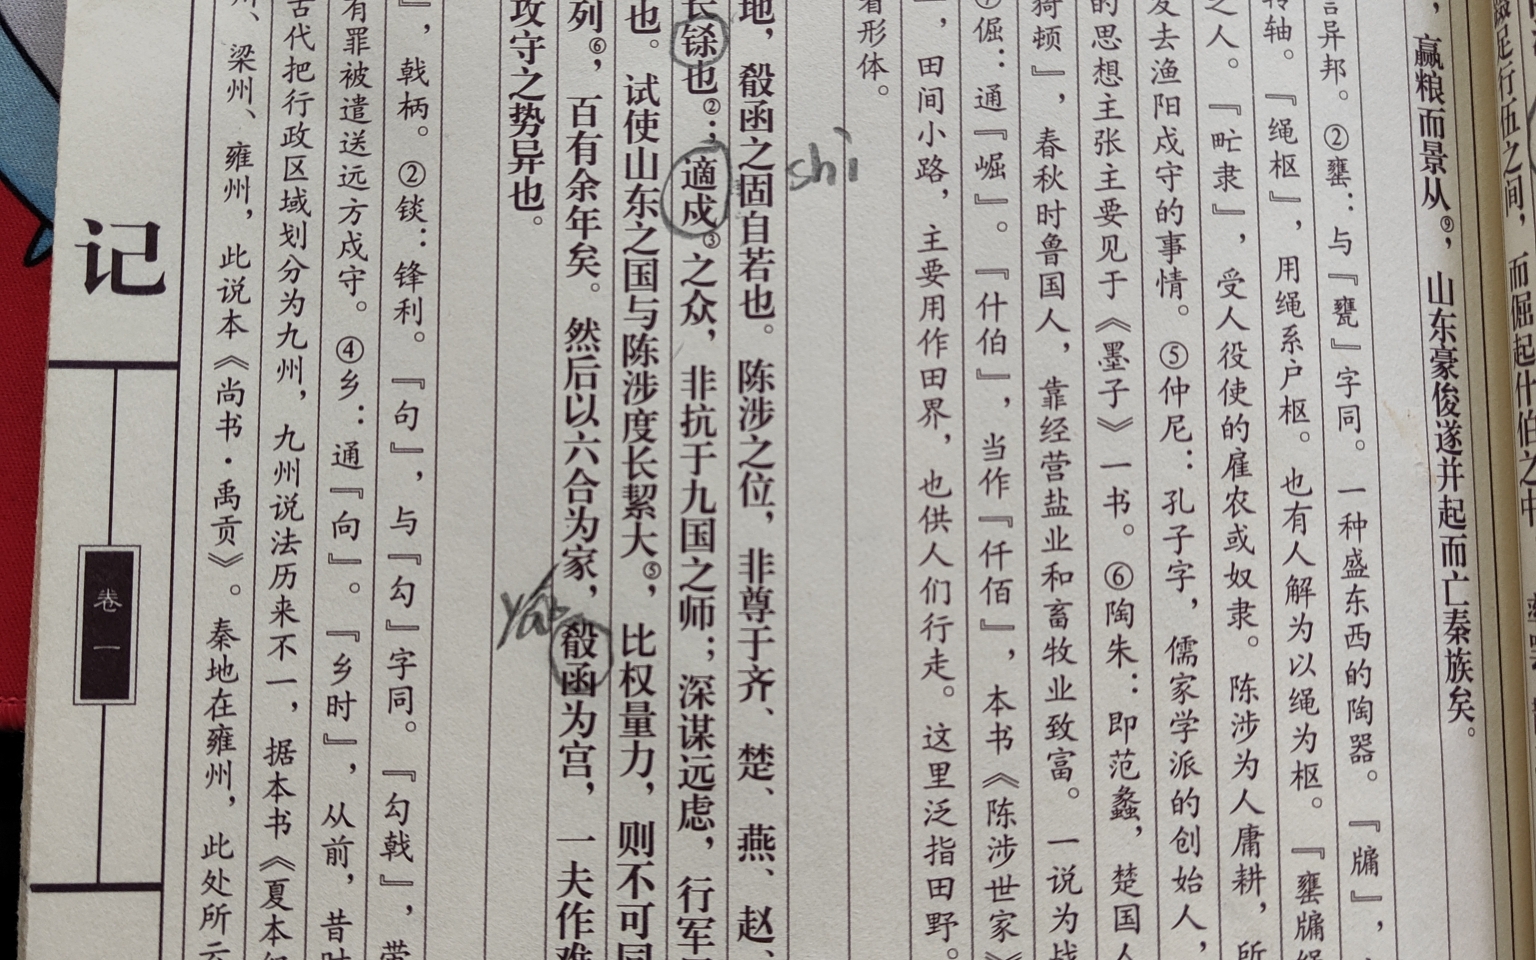 而倔起什伯之中
，赢粮而景从⑨，山东豪俊遂并起而亡秦族矣。
言异邦。②罋：与『甕』字同。一种盛东西的陶器。『牖』，
转轴。『绳枢』，用绳系户枢。也有人解为以绳为枢。『罋牖绳
之人。『甿隶』，受人役使的雇农或奴隶。陈涉为人庸耕，所
发去渔阳戍守的事情。⑤仲尼：孔子字，儒家学派的创始人，
的思想主张主要见于《墨子》一书。⑥陶朱：即范蠡，楚国人
猗顿』，春秋时鲁国人，靠经营盐业和畜牧业致富。一说为战
⑦倔：通『崛』。『什伯』，当作『仟佰』，本书《陈涉世家》
』，田间小路，主要用作田界，也供人们行走。这里泛指田野。
着形体。
shi
地，殽函之固自若也。陈涉之位，非尊于齐、楚、燕、赵、
长铩也②；適戍③之众，非抗于九国之师；深谋远虑，行军
也。试使山东之国与陈涉度长絜大⑤，比权量力，则不可同
列⑥，百有余年矣。然后以六合为家，殽函为宫，一夫作难
攻守之势异也。
』，戟柄。②锬：锋利。『句』，与『勾』字同。『勾戟』，带
有罪被遣送远方戍守。④乡：通『向』。『乡时』，从前，昔时
古代把行政区域划分为九州，九州说法历来不一，据本书《夏本纪
州、梁州、雍州，此说本《尚书·禹贡》。秦地在雍州，此处所云
记
卷一